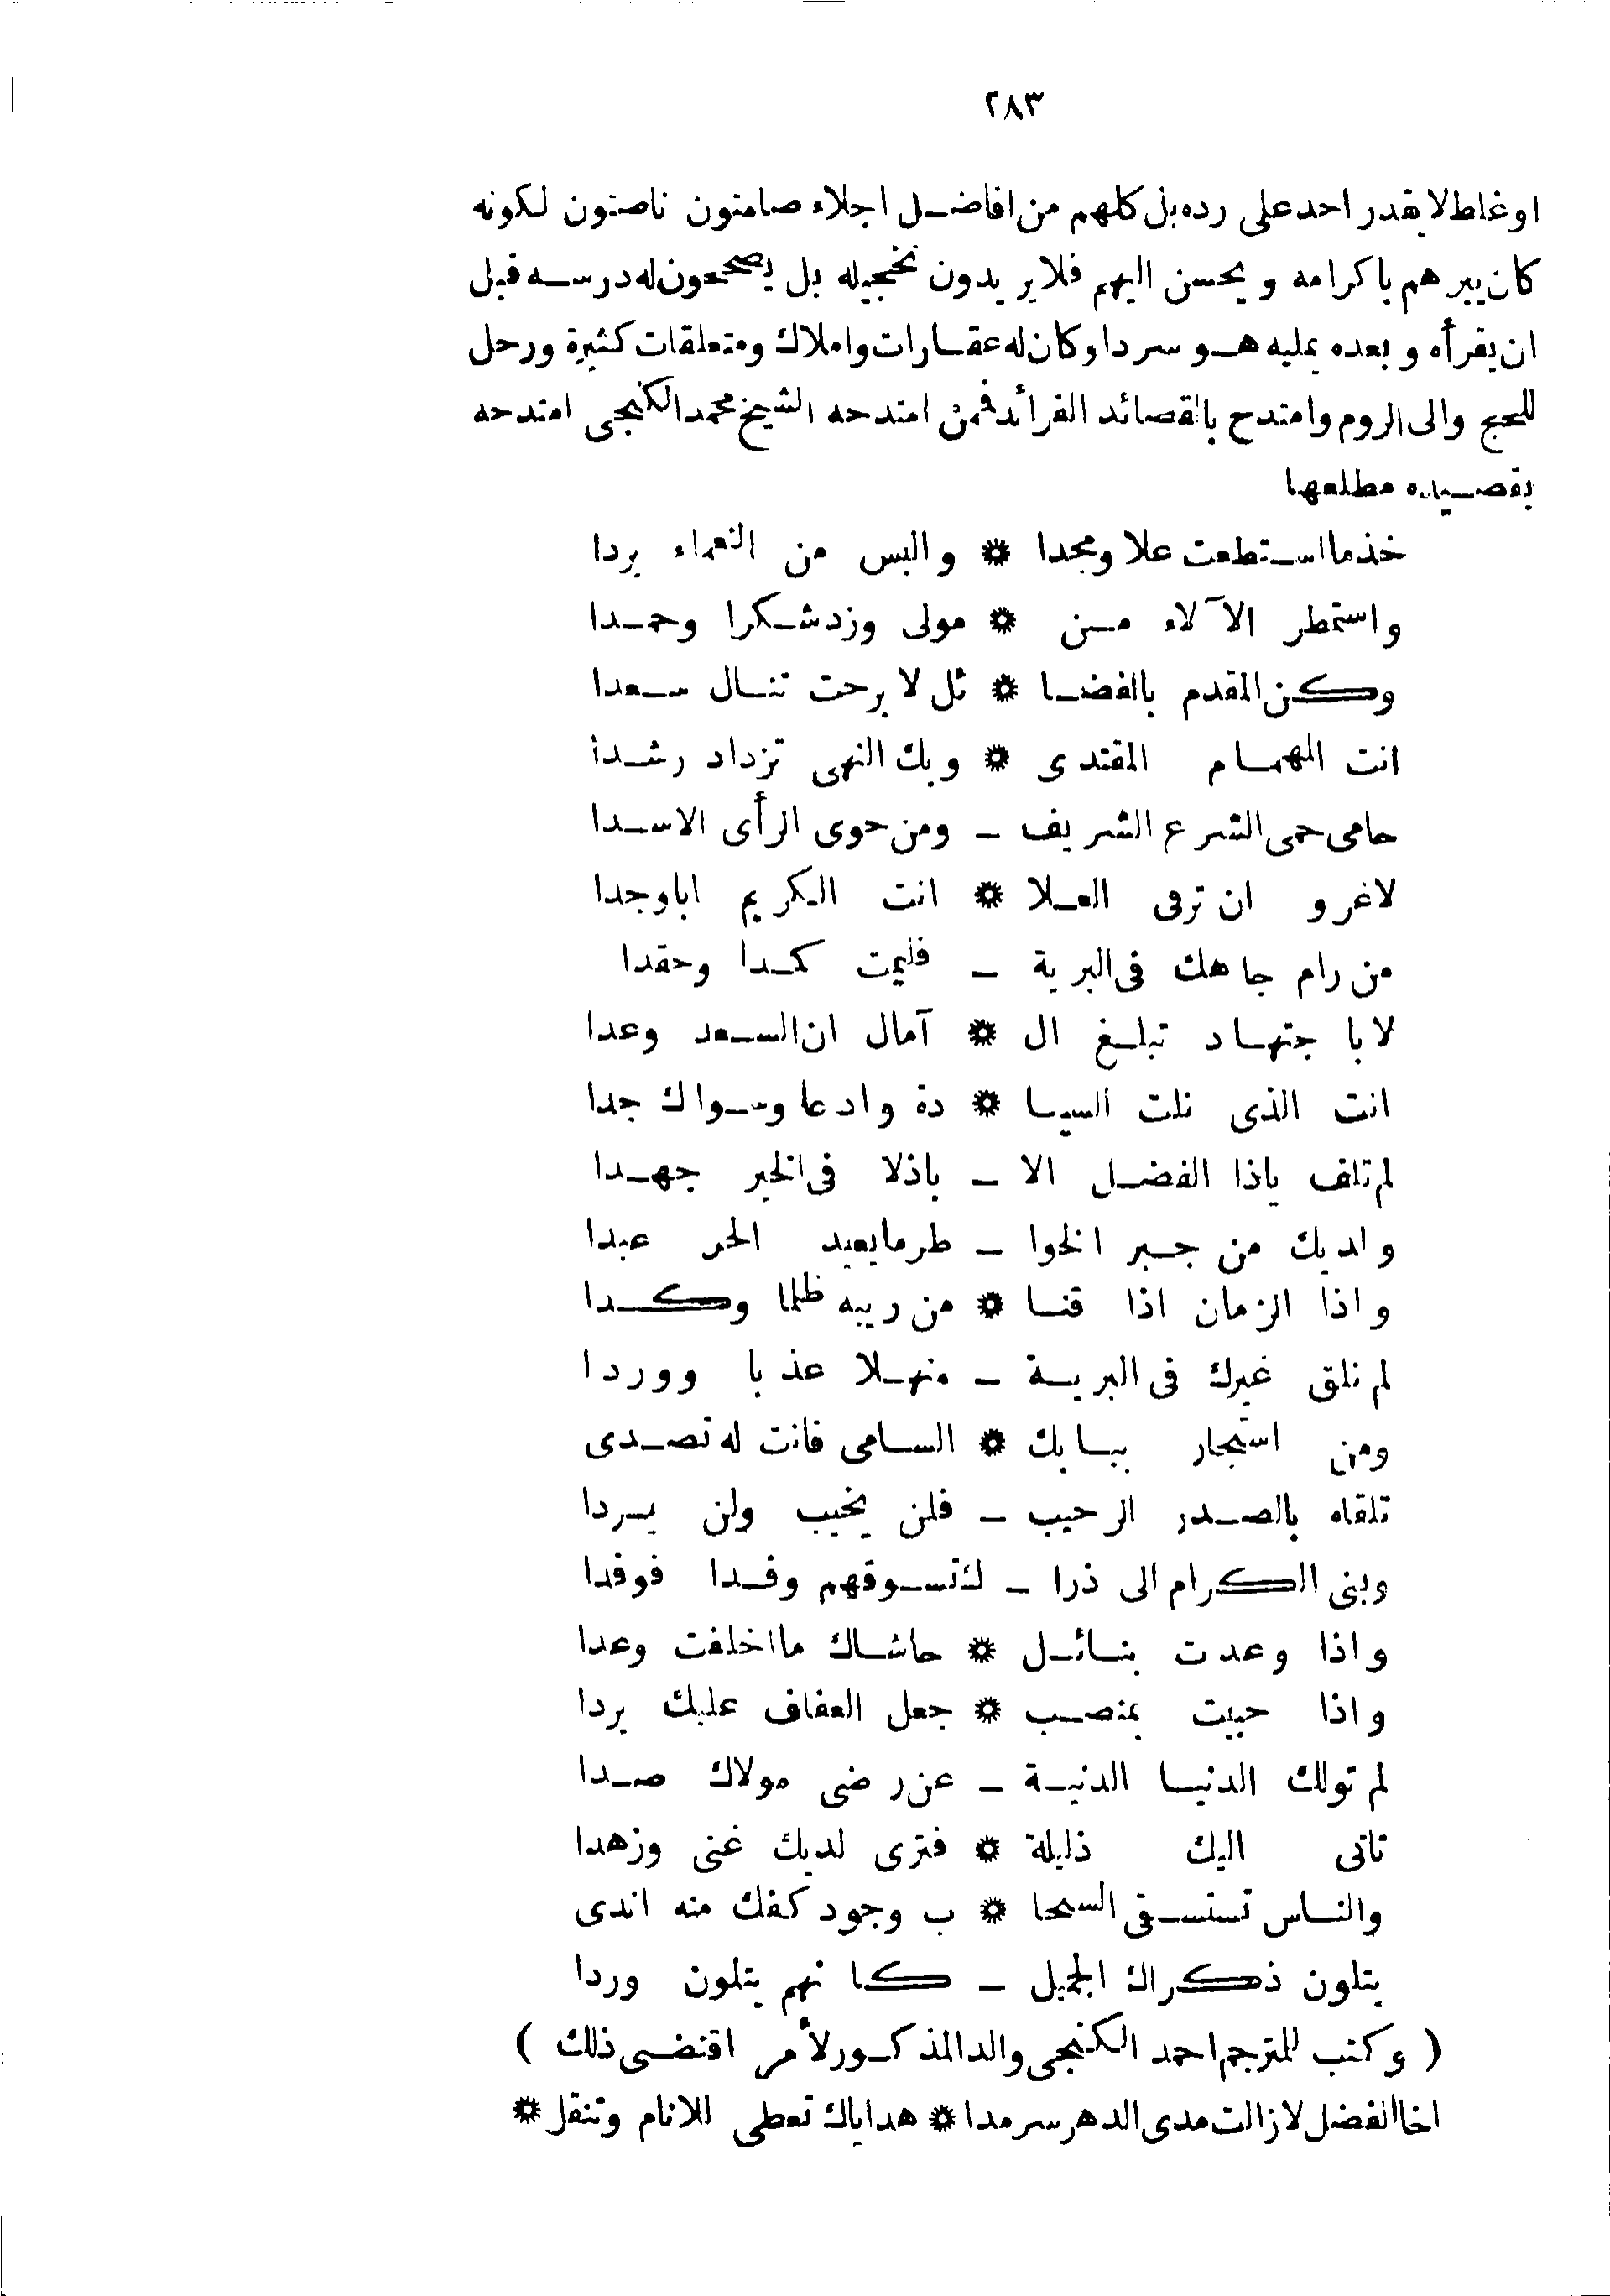 ٢٨٣
او غاط لا يقدر احد على رده بل كلهم من افاضل اجلاء صامتون ناصتون لكونه
كان يبرهم باكرامه ويحسن اليهم فلا يريدون تخجيله بل يصححون له درسه قبل
ان يقرأه وبعده يمليه هو سردا وكان له عقارات واملاك ومتعلقات كثيرة ورحل
للحج والى الروم وامتدح بالقصائد الفرائد فممن امتدحه الشيخ محمد الكنجى امتدحه
بقصيده مطلعها
خذ ما استطعت علا ومجدا * والبس من النعماء بردا
واستمطر الآلاء من * مولى وزد شكرا وحمدا
وكن المقدم بالفضا * ئل لا برحت تنال سعدا
انت الهمام المقتدى * وبك النهى تزداد رشدا
حامى حمى الشرع الشريف – ومن حوى الرأى الاسدا
لاغرو ان ترقى العلا * انت الكريم ابا وجدا
من رام جاهك فى البرية – فليمت كمدا وحقدا
لا باجتهاد تبلغ ال * آمال ان السعد وعدا
انت الذى نلت السيا * دة وادعا وسواك جدا
لم تلف ياذا الفضل الا – باذلا فى الخير جهدا
ولديك من جبر الخوا – طر ما يعيد الحر عبدا
واذا الزمان اذا قنا * من ريبه ظلما وكدا
لم نلق غيرك فى البرية – منهلا عذبا ووردا
ومن استجار ببابك * السامى فانت له تصدى
تلقاه بالصدر الرحيب – فلن يخيب ولن يردا
وبنى الكرام الى ذرا – ك تسوقهم وفدا فوفدا
واذا وعدت بنائل * حاشاك ما اخلفت وعدا
واذا حبيت بمنصب * جعل العفاف عليك بردا
لم تولك الدنيا الدنية – عن رضى مولاك صدا
تاتى اليك ذليلة * فترى لديك غنى وزهدا
والناس تستسقى السحا * ب وجود كفك منه اندى
يتلون ذكراك الجميل – كانهم يتلون وردا
( وكتب للمترجم احمد الكنجى والد المذكور لأمر اقتضى ذلك )
اخا الفضل لا زالت مدى الدهر سرمدا * هداياك تعطى للانام وتنقل *